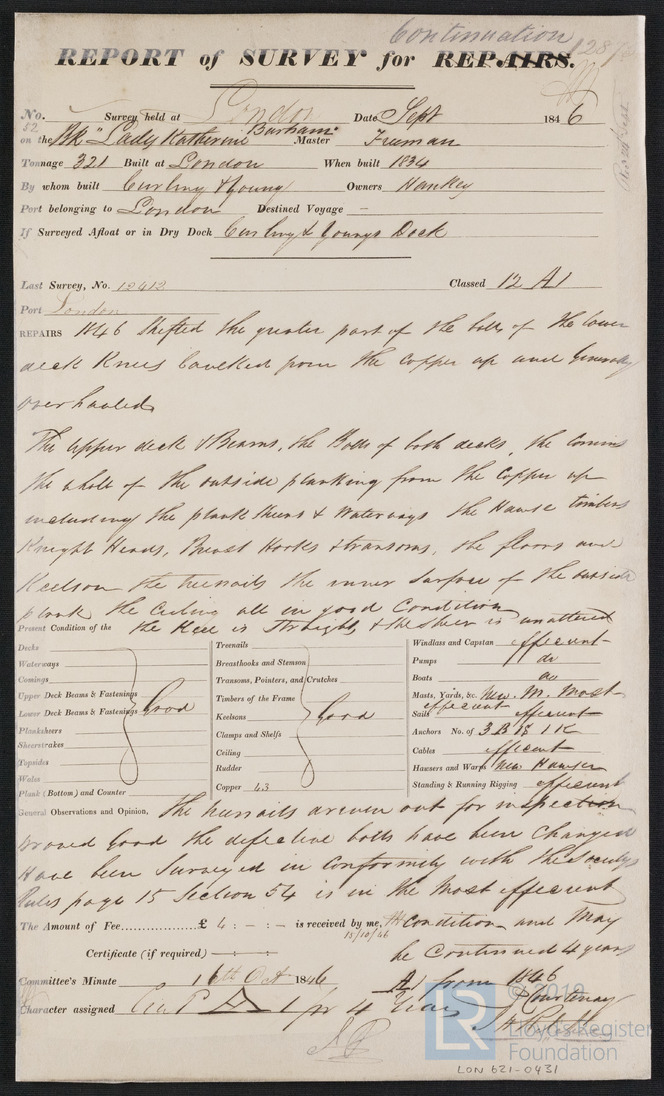 Continuation
REPORT of SURVEY for REPAIRS.
No. Survey held at London Date Sept 1846
52
on the Bk "Lady Katherine Barham" Master Freeman
Tonnage 321 Built at London When built 1834
By whom built Curling & Young Owners Hankey
Port belonging to London Destined Voyage –
If Surveyed Afloat or in Dry Dock Curling & Youngs Dock
Last Survey, No. 12412 Classed 12 A1
Port London
REPAIRS 1846 Shifted the greater part of the bolts of the lower
deck Knees Caulked from the Copper up and Generally
overhauled
The Upper deck & Beams, the Bolts of both decks, the Comings
the whole of the outside planking from the Copper up
including the plank sheers & Waterways the Hawse timbers
Knight Heads, Breast Hooks & transoms, the floors and
Keelson the treenails the inner Surface of the outside
plank the Ceiling all in good Condition
Present Condition of the the Keel is Straight & the Sheer is unaltered
Decks
Waterways
Comings
Upper Deck Beams & Fastenings
Lower Deck Beams & Fastenings Good
Planksheers
Sheerstrakes
Topsides
Wales
Plank (Bottom) and Counter
Treenails
Breasthooks and Stemson
Transoms, Pointers, and Crutches
Timbers of the Frame
Keelsons Good
Clamps and Shelfs
Ceiling
Rudder
Copper 43
Windlass and Capstan efficient
Pumps do
Boats do
Masts, Yards, &c. New M. Mast
efficient
Sails efficient
Anchors No. of 3 B 1 S 1 K
Cables efficient
Hawsers and Warps New Hawser
Standing & Running Rigging efficient
General Observations and Opinion, The treenails driven out for inspection
proved Good the defective bolts have been Changed
Have been Surveyed in Conformity with the Society's
Rules page 15 Section 54 is in the Most efficient
The Amount of Fee £ 4 : - : - is received by me, Condition and May
15/10/46
Certificate (if required) be Continued 4 years
Committee's Minute 16th Oct 1846 A1 from 1846
Character assigned A 1 for 4 Years Courtenay
© 2019
LR
Lloyd's Register
Foundation
LON 621-0431